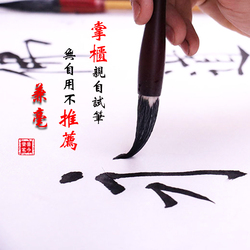 掌櫃親自試筆
無自用不推薦
兼毫